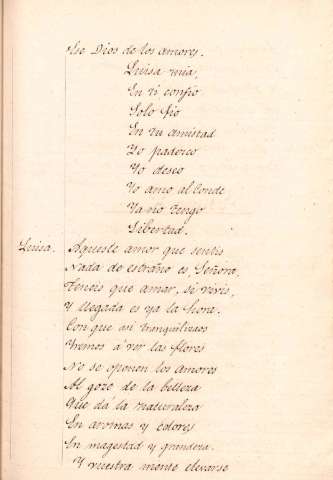 Ese Dios de los amores.
Luisa mia,
En ti confio
Solo fio
En tu amistad
Yo padezco
Yo deseo
Yo amo al Conde
Ya no tengo
Libertad.
Luisa. Aqueste amor que sentis
Nada de estraño es, Señora,
Teneis que amar, si vivis,
Y llegada es ya la hora.
Con que asi tranquilizaos
Iremos á ver las flores
No se oponen los amores
Al goze de la belleza
Que dá la naturaleza
En aromas y colores
En magestad y grandeza.
Y vuestra mente elevarse